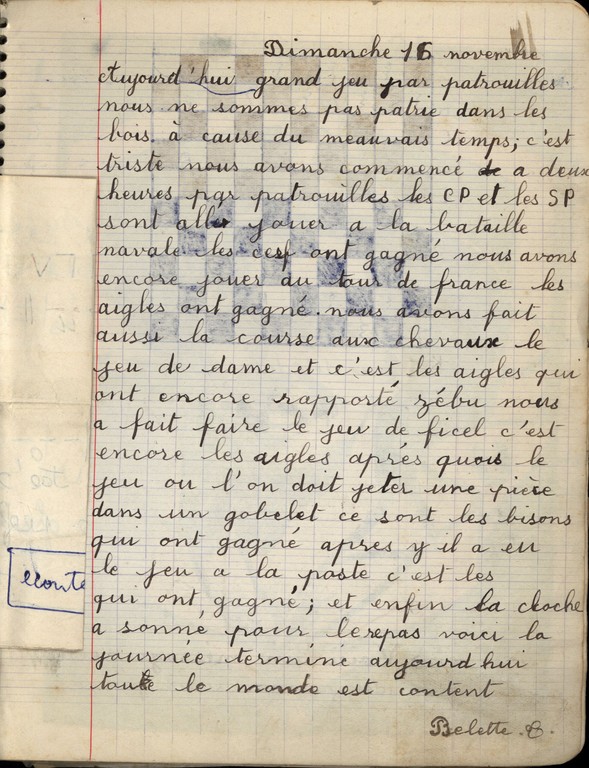 Dimanche 16 novembre
Aujourd'hui grand jeu par patrouilles
nous ne sommes pas patrie dans les
bois. à cause du meauvais temps; c'est
triste nous avons commencé a deux
heures par patrouilles les CP et les SP
sont aller jouer a la bataille
navale les cerf ont gagné nous avons
encore jouer au tour de france les
aigles ont gagné. nous avons fait
aussi la course aux chevaux le
jeu de dame et c'est les aigles qui
ont encore rapporté zébu nous
a fait faire le jeu de ficel c'est
encore les aigles aprés quois le
jeu ou l'on doit jeter une pièce
dans un gobelet ce sont les bisons
qui ont gagné apres y il a eu
le jeu a la poste c'est les
qui ont gagné; et enfin la cloche
a sonné pour le repas voici la
journée terminé aujourd hui
toute le monde est content
Belette.
ecoute